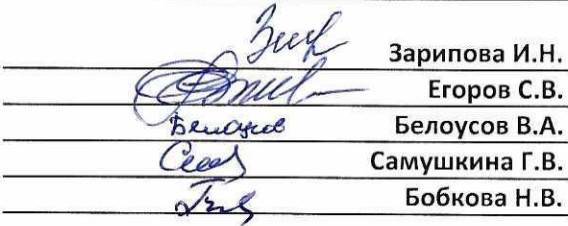 Зарипова И.Н.
Егоров С.В.
Белоусов Белоусов В.А.
Самушкина Г.В.
Бобкова Н.В.